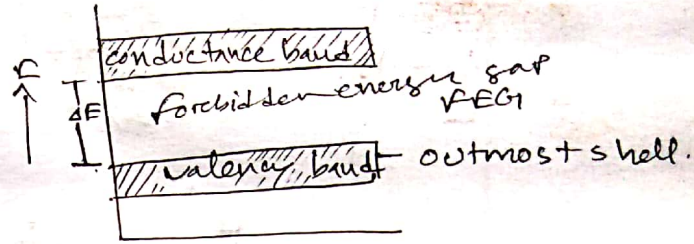 conductance baud
r
ΔE
forebidden energy gap
FEG
valency baud
outmost shell.